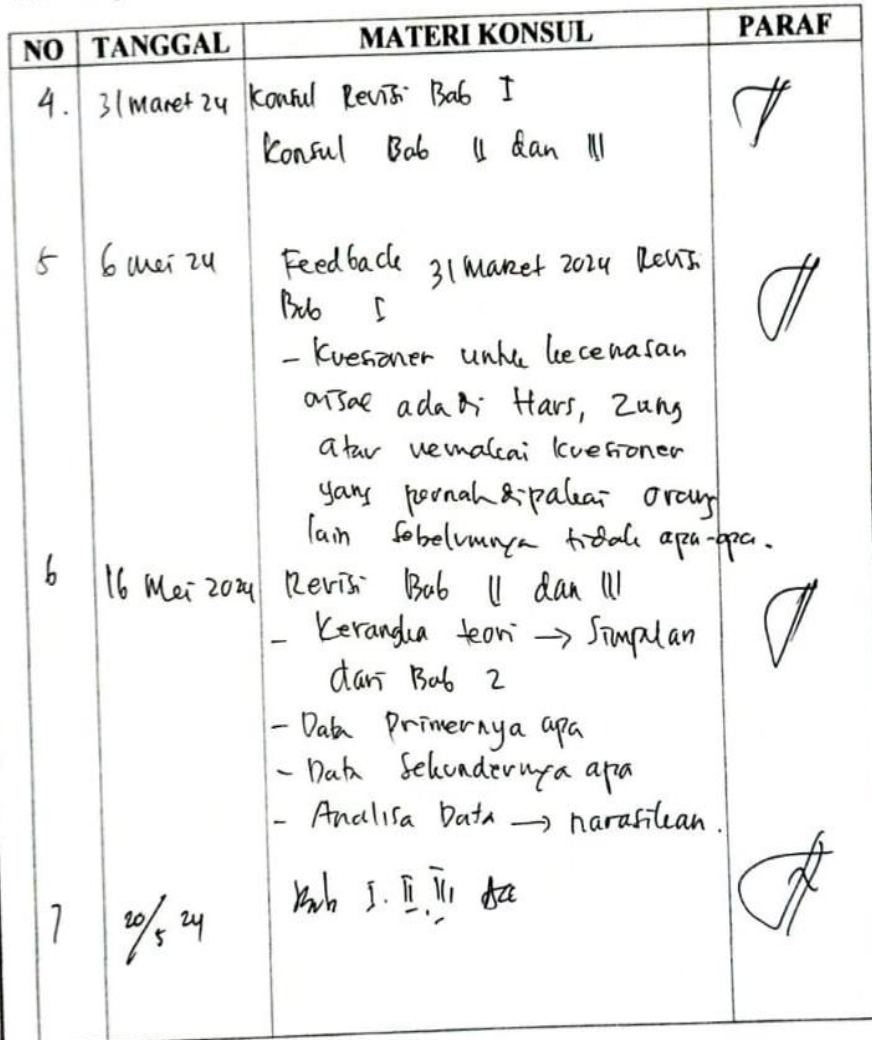 NO TANGGAL MATERI KONSUL PARAF
4. 31 Maret 24 Konsul Revisi Bab I
Konsul Bab II dan III
5 6 Mei 24 Feedback 31 Maret 2024 Revisi
Bab I
- Kuesioner untuk kecemasan
misal ada di Hars, Zung
atau memakai kuesioner
yang pernah dipakai orang
lain sebelumnya tidak apa-apa.
6 16 Mei 2024 Revisi Bab II dan III
- Kerangka teori → Simpulan
dari Bab 2
- Data Primernya apa
- Data Sekundernya apa
- Analisa Data → narasikan.
7 20/5 24 Bab I. II. III